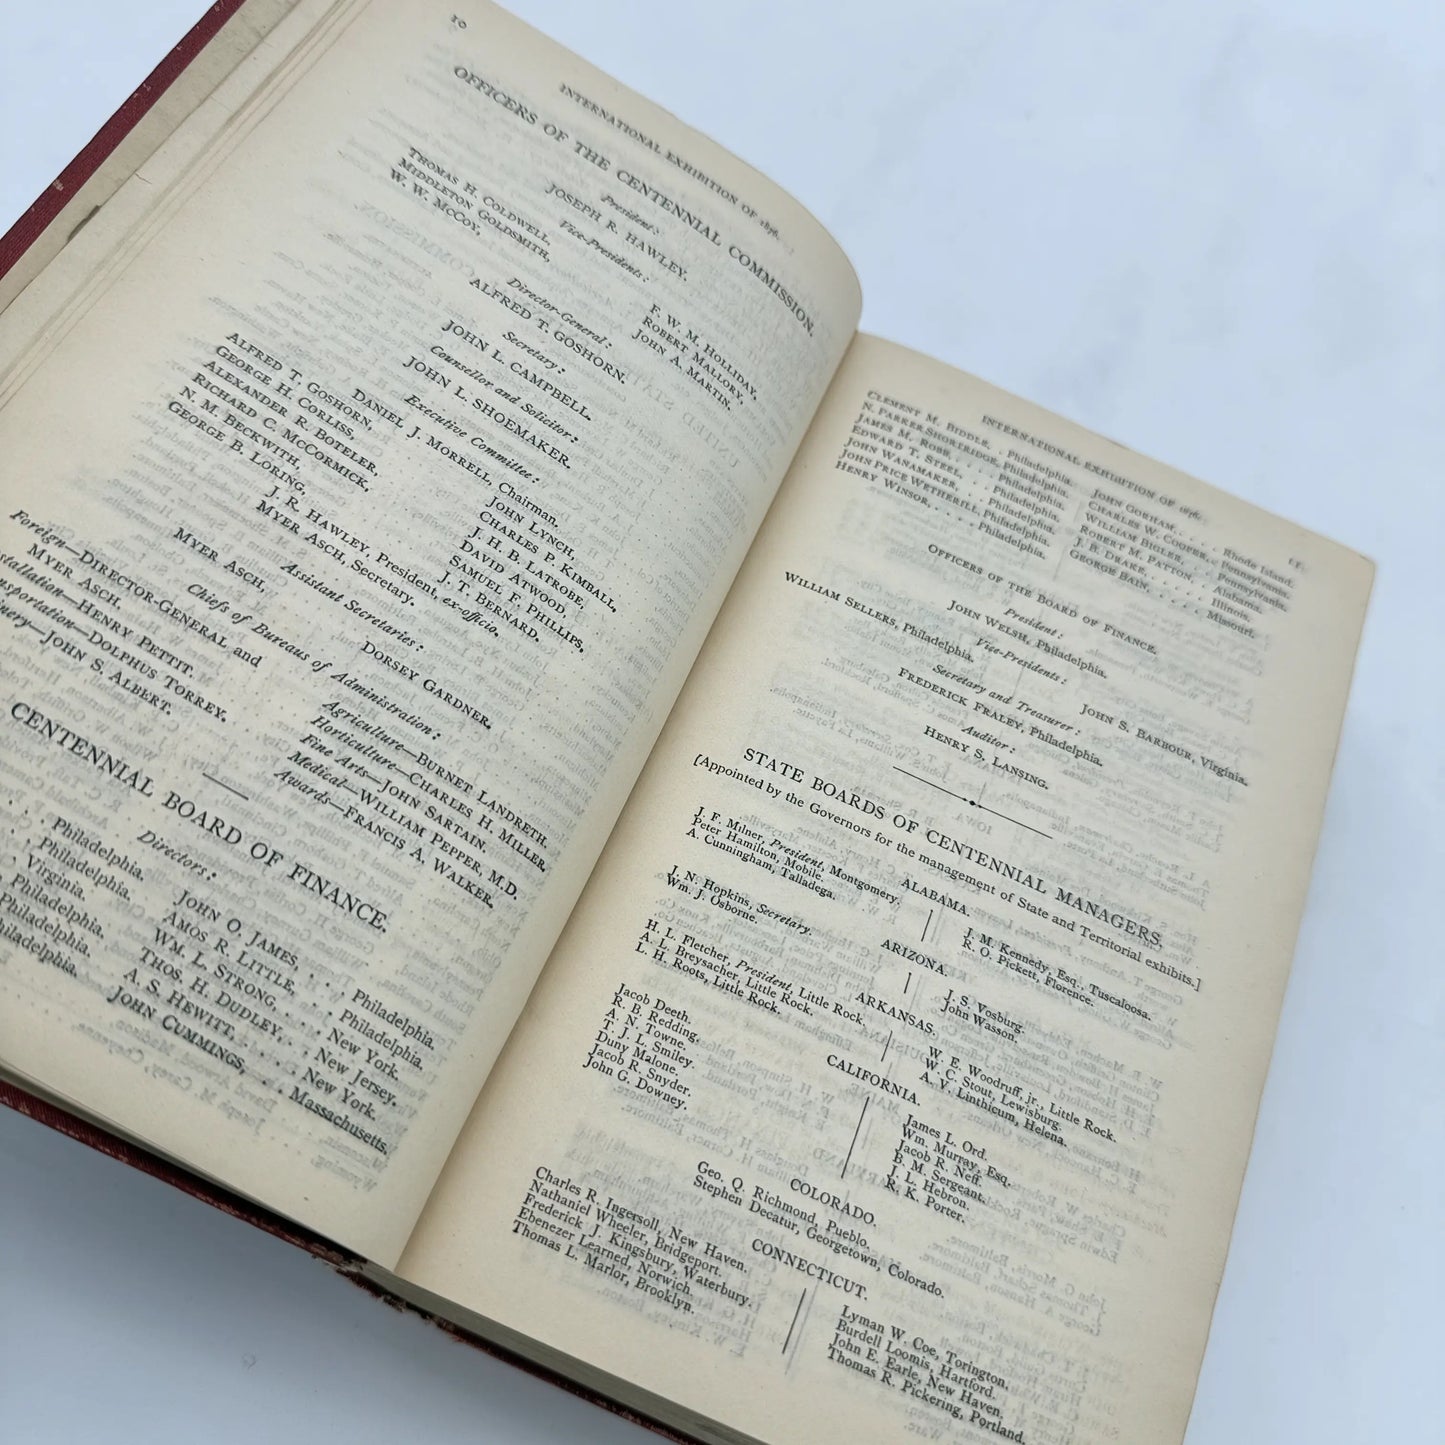 10
INTERNATIONAL EXHIBITION OF 1876.
OFFICERS OF THE CENTENNIAL COMMISSION.
President:
JOSEPH R. HAWLEY.
Vice-Presidents:
THOMAS H. COLDWELL,
MIDDLETON GOLDSMITH,
W. W. McCOY,
F. W. M. HOLLIDAY,
ROBERT MALLORY,
JOHN A. MARTIN.
Director-General:
ALFRED T. GOSHORN.
Secretary:
JOHN L. CAMPBELL.
Counsellor and Solicitor:
JOHN L. SHOEMAKER.
Executive Committee:
DANIEL J. MORRELL, Chairman.
ALFRED T. GOSHORN,
GEORGE H. CORLISS,
ALEXANDER R. BOTELER,
RICHARD C. McCORMICK,
N. M. BECKWITH,
GEORGE B. LORING,
JOHN LYNCH,
CHARLES P. KIMBALL,
J. H. B. LATROBE,
DAVID ATWOOD,
SAMUEL F. PHILLIPS,
J. T. BERNARD.
J. R. HAWLEY, President, ex-officio.
MYER ASCH, Secretary.
Assistant Secretaries:
MYER ASCH,
DORSEY GARDNER.
Chiefs of Bureaus of Administration:
Foreign—DIRECTOR-GENERAL and
MYER ASCH.
HENRY PETTIT.
DOLPHUS TORREY.
JOHN S. ALBERT.
Agriculture—BURNET LANDRETH.
Horticulture—CHARLES H. MILLER.
Fine Arts—JOHN SARTAIN.
Medical—WILLIAM PEPPER, M.D.
Awards—FRANCIS A. WALKER.
CENTENNIAL BOARD OF FINANCE.
Directors:
Philadelphia.
Philadelphia.
Virginia.
Philadelphia.
Philadelphia.
JOHN O. JAMES, . . . Philadelphia.
AMOS R. LITTLE, . . . Philadelphia.
WM. L. STRONG, . . . New York.
THOS. H. DUDLEY, . . . New Jersey.
A. S. HEWITT, . . . New York.
JOHN CUMMINGS, . . Massachusetts.
INTERNATIONAL EXHIBITION OF 1876.
11
CLEMENT M. BIDDLE, . Philadelphia.
N. PARKER SHORTRIDGE, Philadelphia.
JAMES M. ROBB, . . . Philadelphia.
EDWARD T. STEEL, . . . Philadelphia.
JOHN WANAMAKER, . . . Philadelphia.
JOHN PRICE WETHERILL, Philadelphia.
HENRY WINSOR, . . . . . Philadelphia.
JOHN GORHAM, . . . . Rhode Island.
CHARLES W. COOPER, . . Pennsylvania.
WILLIAM BIGLER, . . . Pennsylvania.
ROBERT M. PATTON, . . Alabama.
J. B. DRAKE, . . . . . Illinois.
GEORGE BAIN, . . . . . Missouri.
OFFICERS OF THE BOARD OF FINANCE.
President:
JOHN WELSH, Philadelphia.
Vice-Presidents:
WILLIAM SELLERS, Philadelphia.
JOHN S. BARBOUR, Virginia.
Secretary and Treasurer:
FREDERICK FRALEY, Philadelphia.
Auditor:
HENRY S. LANSING.
STATE BOARDS OF CENTENNIAL MANAGERS,
[Appointed by the Governors for the management of State and Territorial exhibits.]
ALABAMA.
J. F. Milner, President, Montgomery.
Peter Hamilton, Mobile.
A. Cunningham, Talladega.
J. M. Kennedy, Esq., Tuscaloosa.
R. O. Pickett, Florence.
ARIZONA.
J. N. Hopkins, Secretary.
Wm. J. Osborne.
J. S. Vosburg.
John Wasson.
ARKANSAS.
H. L. Fletcher, President, Little Rock.
A. L. Breysacher, Little Rock.
L. H. Roots, Little Rock.
W. E. Woodruff, jr., Little Rock.
W. C. Stout, Lewisburg.
A. V. Linthicum, Helena.
CALIFORNIA.
Jacob Deeth.
R. B. Redding.
A. N. Towne.
T. J. L. Smiley.
Duny Malone.
Jacob R. Snyder.
John G. Downey.
James L. Ord.
Wm. Murray, Esq.
Jacob R. Neff.
B. M. Sergeant.
J. L. Hebron.
R. K. Porter.
COLORADO.
Geo. Q. Richmond, Pueblo.
Stephen Decatur, Georgetown, Colorado.
CONNECTICUT.
Charles R. Ingersoll, New Haven.
Nathaniel Wheeler, Bridgeport.
Frederick J. Kingsbury, Waterbury.
Ebenezer Learned, Norwich.
Thomas L. Marlor, Brooklyn.
Lyman W. Coe, Torington.
Burdell Loomis, Hartford.
John E. Earle, New Haven.
Thomas R. Pickering, Portland.